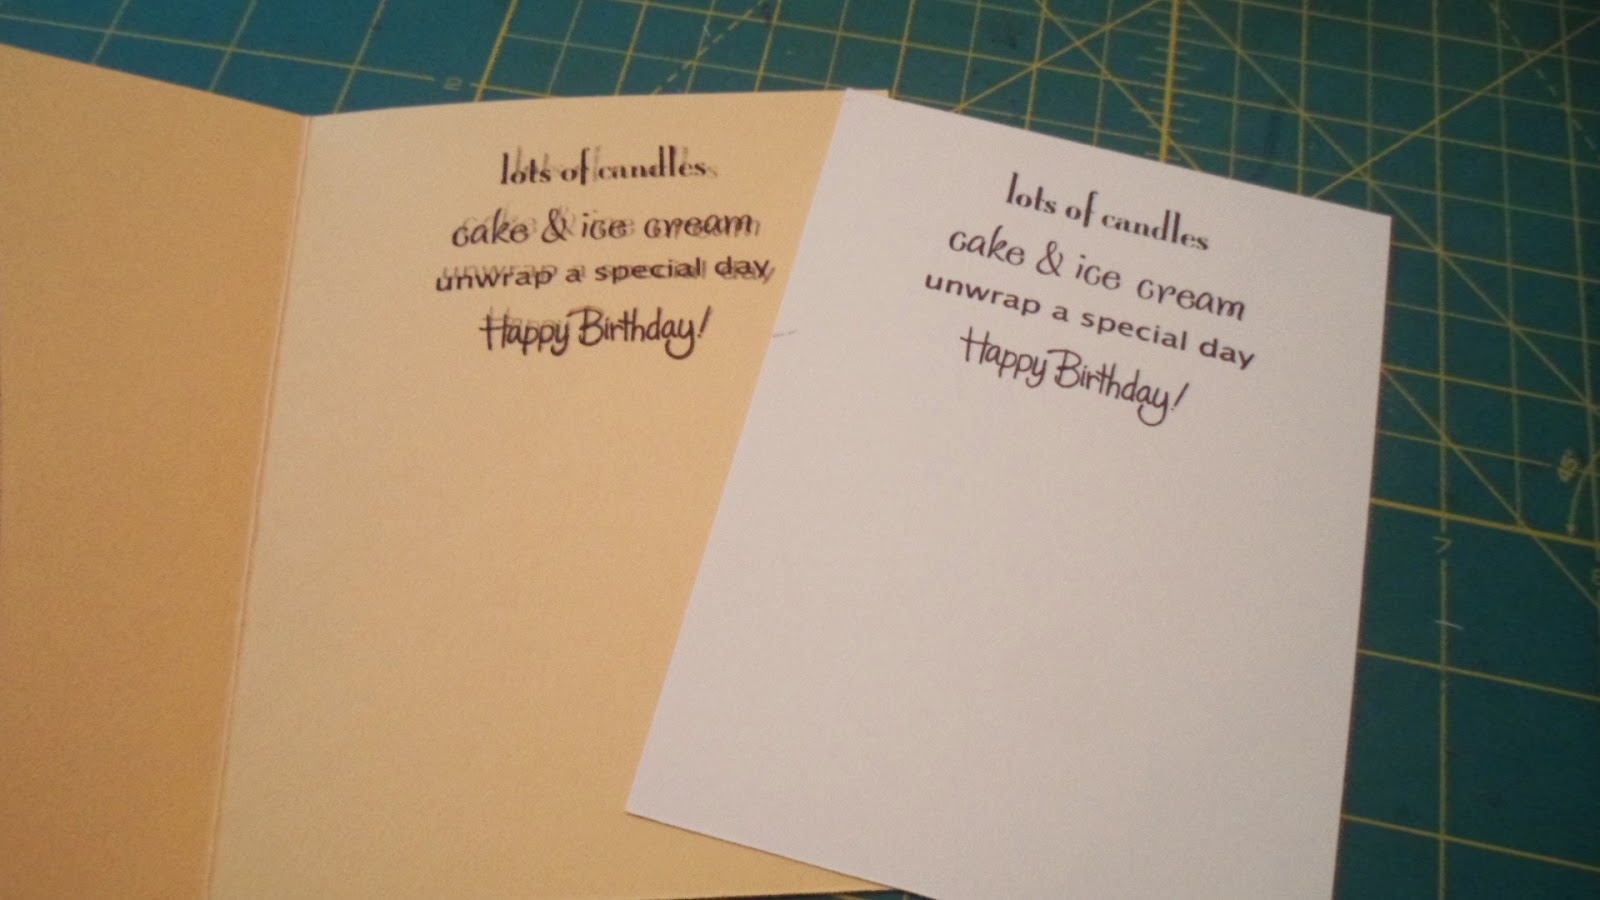 lots of candles
cake & ice cream
unwrap a special day
Happy Birthday!
lots of candles
cake & ice cream
unwrap a special day
Happy Birthday!
2
7